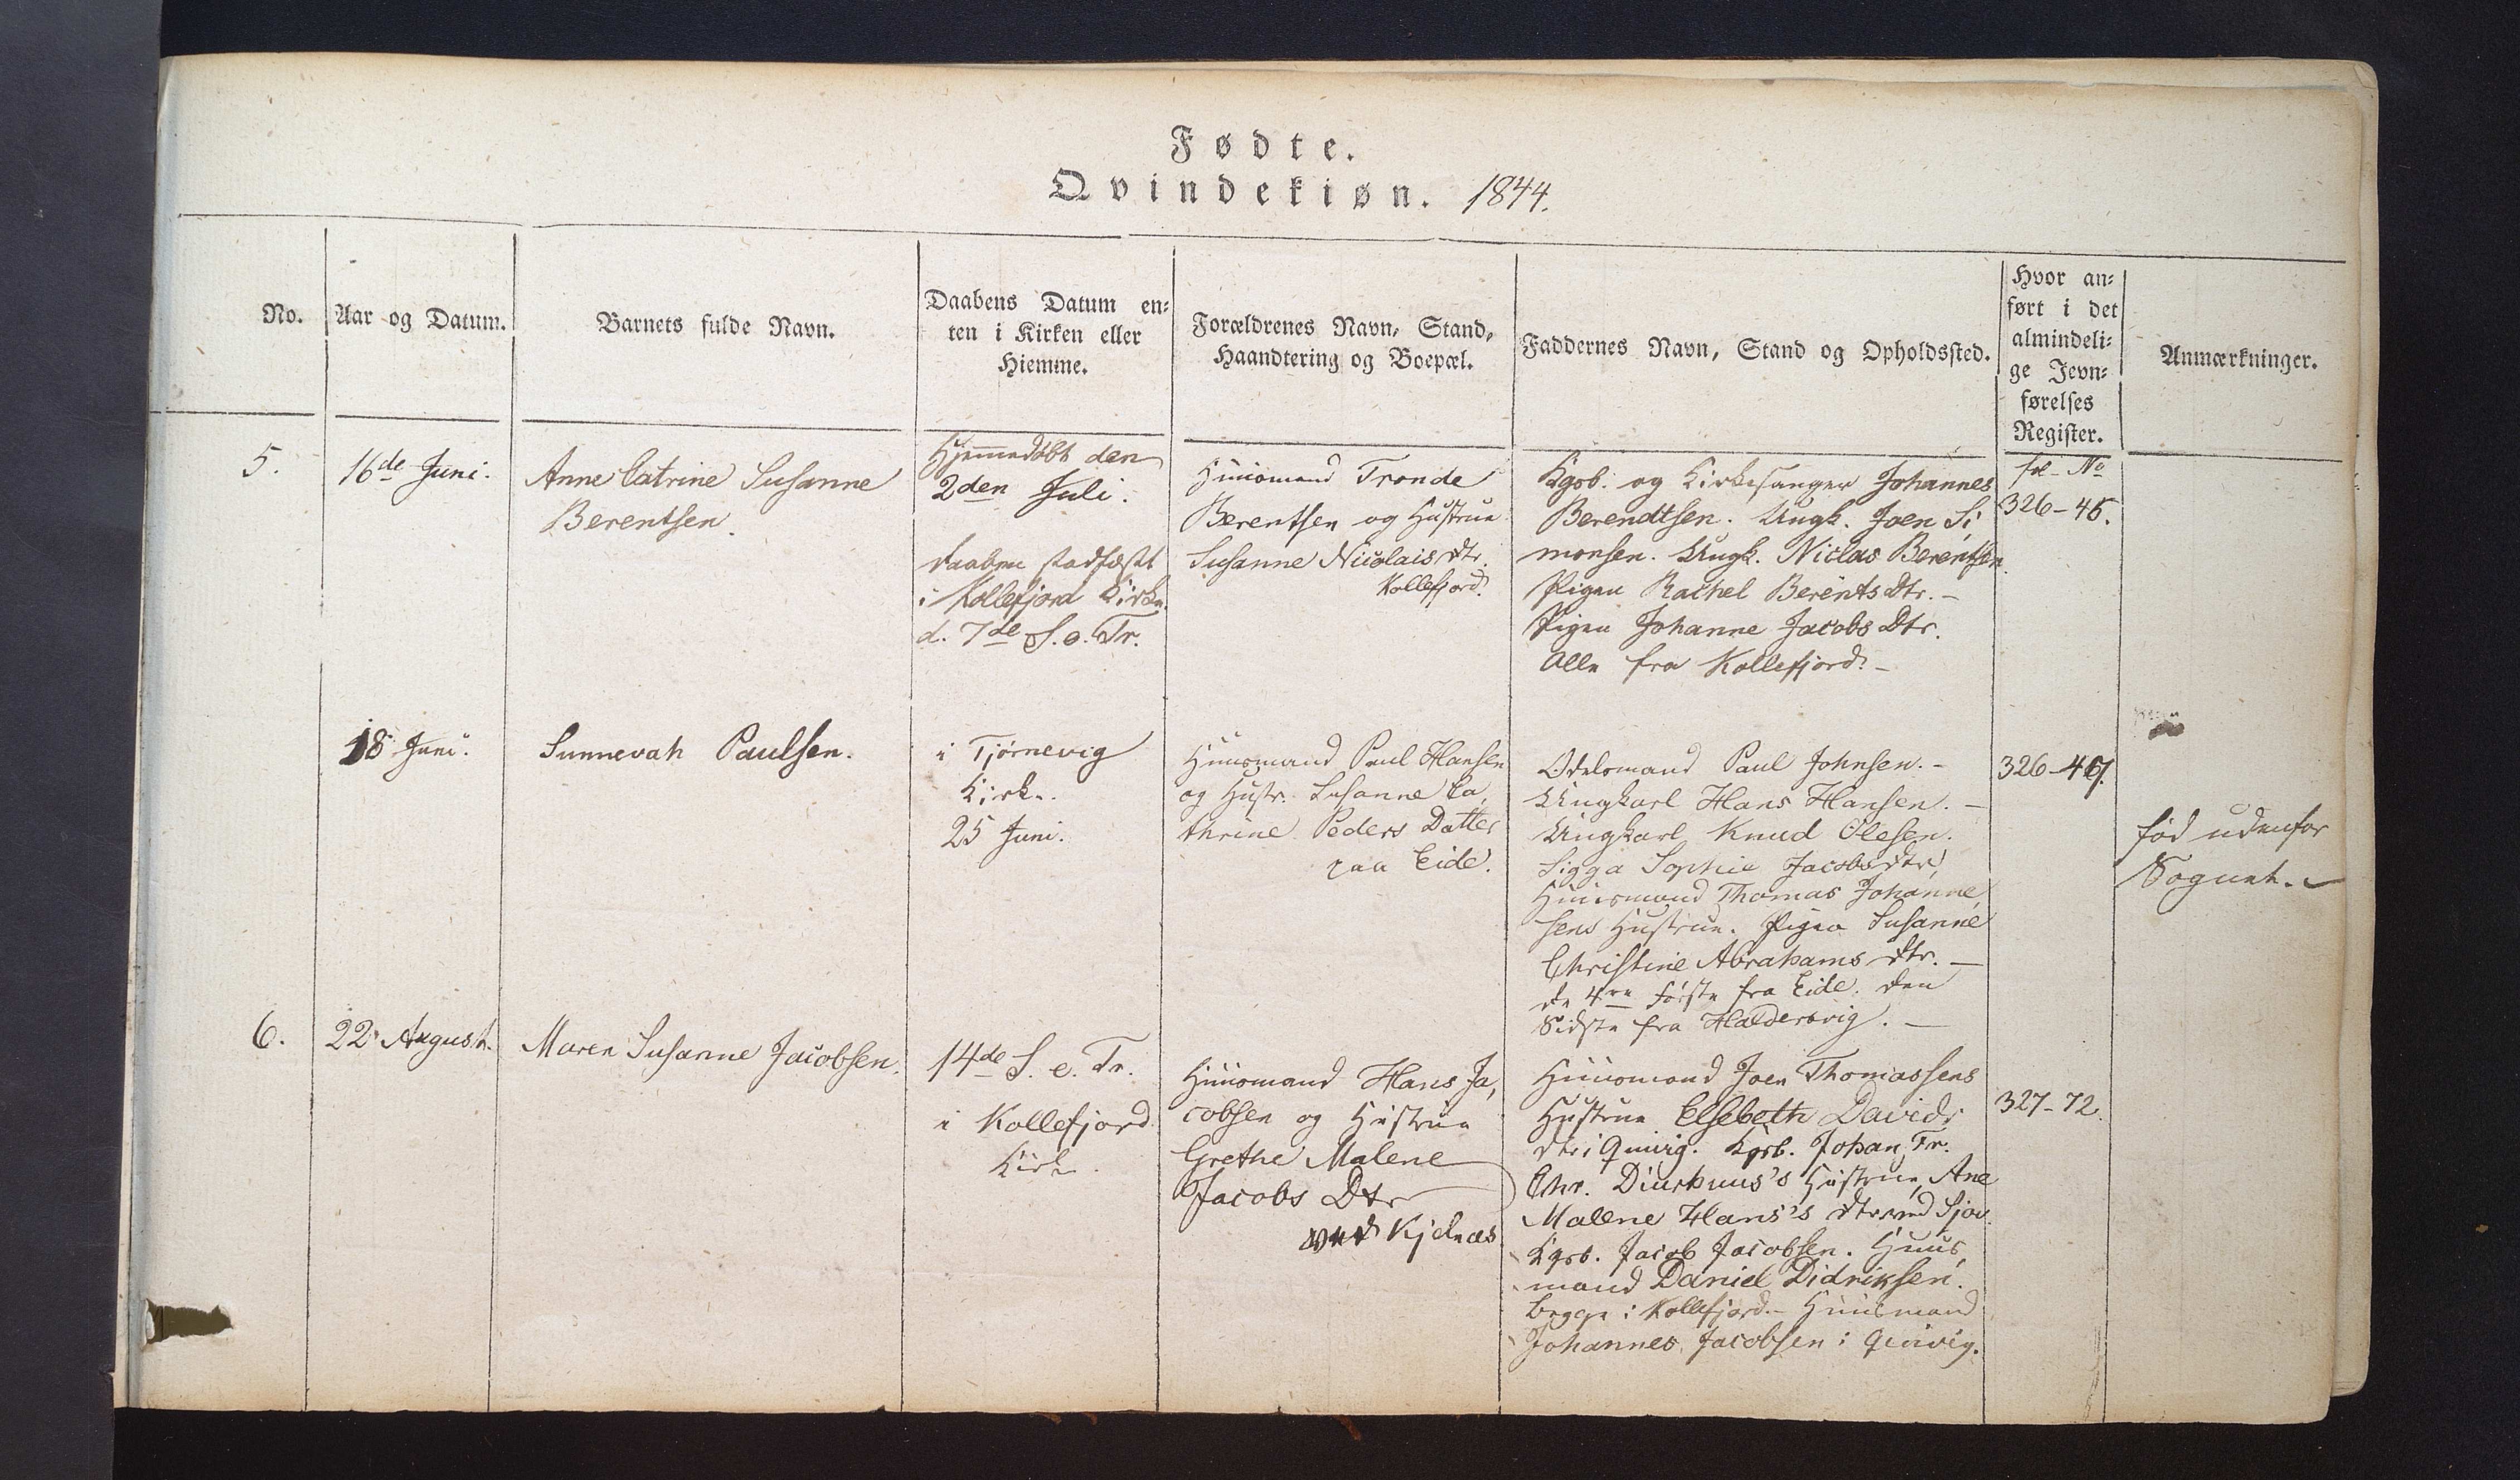 Fødte.
Qvindekiøn. 1844.
No.
Aar og Datum.
Barnets fulde Navn.
Daabens Datum en-
ten i Kirken eller
Hiemme.
Forældrenes Navn, Stand,
Haandtering og Boepæl.
Faddernes Navn, Stand og Opholdssted.
Hvor an-
ført i det
almindeli-
ge Jevn-
førelses
Register.
Anmærkninger.
5.
16de Juni.
Anne Catrine Susanne
Berentsen.
Hjemmedøbt den
2den Juli.
Daaben stadfæstet
i Kollefjord Kirke.
d. 7de S. e. Tr.
Huusmand Tronde
Berentsen og Hustrue
Susanne Nicolais Dtr.
Kollefjord.
Kgsb. og Kirkesanger Johannes
Berendtsen. Ungk. Joen Si
monsen. Ungk. Niclas Berentsen.
Pigen Rachel Berents Dtr. -
Pigen Johanne Jacobs Dtr.
Alle fra Kollefjord. -
fol- No
326-45.
18 Juni.
Sunnevah Paulsen.
i Tjørnevig
Kirke.
25 Juni.
Huusmand Paul Hansen
og Hustr. Susanne Ca,
thrine Peders Datter
paa Eide.
Odelsmand Paul Johnsen. -
Ungkarl Hans Hansen. -
Ungkarl Knud Olesen.
Sigga Sophie Jacobsdtr,
Huusmand Thomas Johanne,
sens Hustrue. Pigen Susanne
Christine Abrahams Dtr. -
de 4re første fra Eide. den
Sidste fra Haldersvig. -
326-
fød udenfor
Sognet. -
6.
22 August.
Maren Susanne Jacobsen.
14de S. e. Tr.
i Kollefjord
Kirke.
Huusmand Hans Ja,
cobsen og Hustrue
Grethe Malene
Jacobs Dtr
ved Kjelnæs
Huusmand Joen Thomassens
Hustrue Elsebeth Davids
Dtr i Qvivig. Kgsb. Johan Fr.
Chr. Diurhuus's Hustrue Ane
Malene Hans's Dtr ved Sjov.
Kgsb. Jacob Jacobsen. Huus,
mand Daniel Didriksen.
begge i Kollefjord. - Huusmand
Johannes Jacobsen i Qvivig.
327-72.